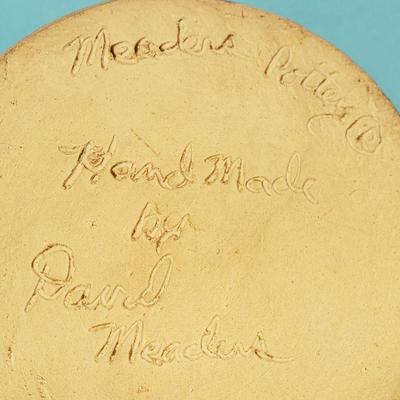 Meaders Pottery ®
Hand Made
by
David
Meaders